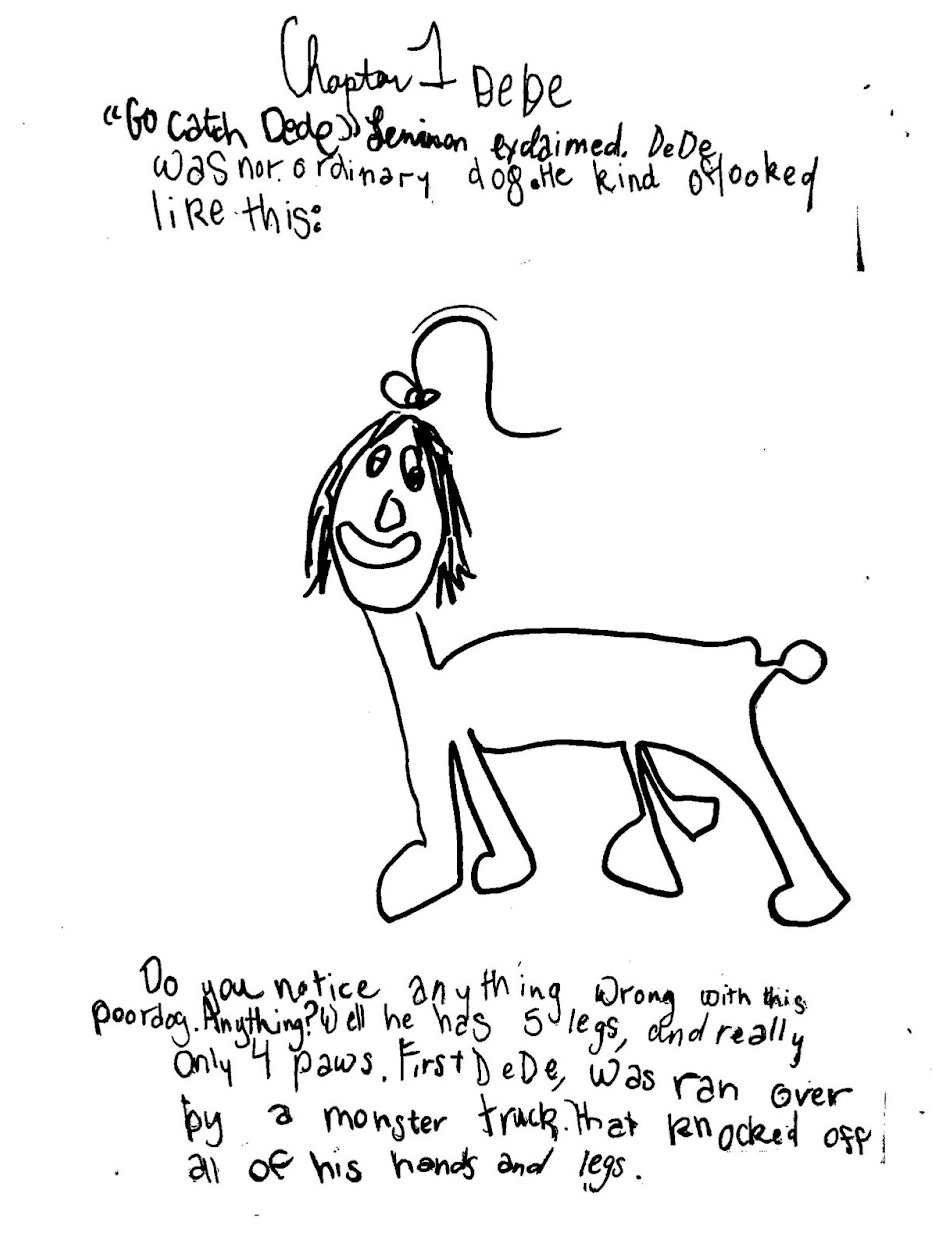 Chapter 1 DeDe
"Go catch Dede" exclaimed. DeDe
was nor ordinary dog. He kind of looked
like this:
Do you notice anything wrong with this
poor dog. Anything? Well he has 5 legs, and really
only 4 paws. First DeDe, was ran over
by a monster truck. That knocked off
all of his hands and legs.